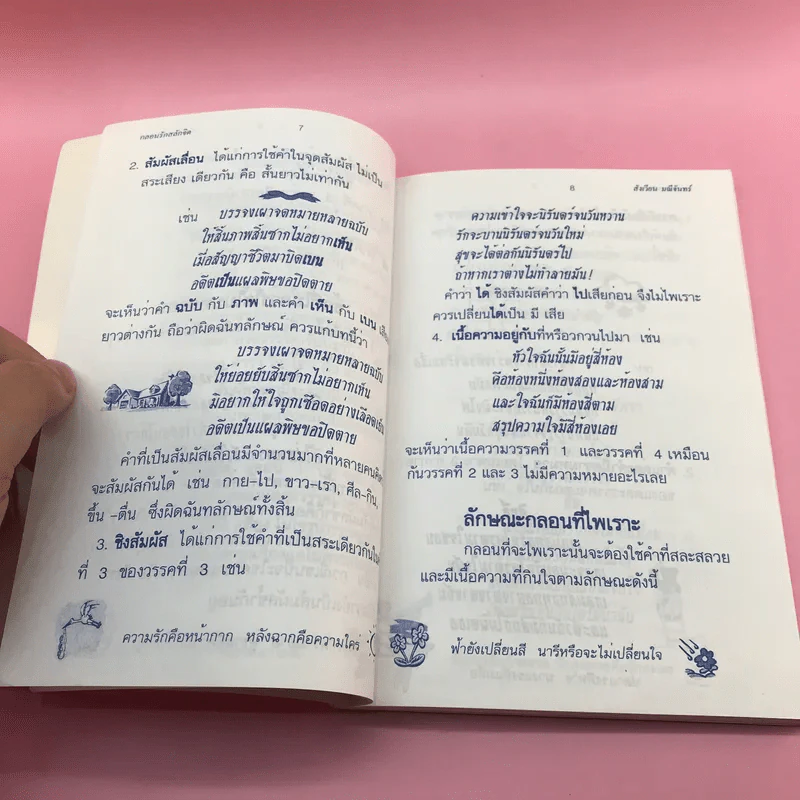 กลอนรักสลักจิต 7
2. สัมผัสเลื่อน ได้แก่การใช้คำในจุดสัมผัส ไม่เป็น
สระเสียง เดียวกัน คือ สั้นยาวไม่เท่ากัน
เช่น บรรจงเผาจดหมายหลายฉบับ
ให้สิ้นภาพสิ้นซากไม่อยากเห็น
เมื่อสัญญาชีวิตมาบิดเบน
อดีตเป็นแผลพิษขอปิดตาย
จะเห็นว่าคำ ฉบับ กับ ภาพ และคำ เห็น กับ เบน
ยาวต่างกัน ถือว่าผิดฉันทลักษณ์ ควรแก้บทนี้ว่า
บรรจงเผาจดหมายหลายฉบับ
ให้ย่อยยับสิ้นซากไม่อยากเห็น
มิอยากให้ใจถูกเชือดอย่างเลือดเย็น
อดีตเป็นแผลพิษขอปิดตาย
คำที่เป็นสัมผัสเลื่อนมีจำนวนมากที่หลายคน
จะสัมผัสกันได้ เช่น กาย-ไป, ขาว-เรา, ศีล-กิน,
ขึ้น -ตื่น ซึ่งผิดฉันทลักษณ์ทั้งสิ้น
3. ชิงสัมผัส ได้แก่การใช้คำที่เป็นสระเดียวกัน
ที่ 3 ของวรรคที่ 3 เช่น
ความรักคือหน้ากาก หลังฉากคือความใคร่
8 สังเวียน มณีจันทร์
ความเข้าใจจะนิรันดร์จนวันหวาน
รักจะบานนิรันดร์จนวันใหม่
สุขจะได้ต่อกันนิรันดร์ไป
ถ้าหากเราต่างไม่ทำลายมัน!
คำว่า ได้ ชิงสัมผัสคำว่า ไปเสียก่อน จึงไม่ไพเราะ
ควรเปลี่ยนได้เป็น มี เสีย
4. เนื้อความอยู่กับที่หรือวกวนไปมา เช่น
หัวใจฉันนั้นมีอยู่สี่ห้อง
คือห้องหนึ่งห้องสองและห้องสาม
และใจฉันก็มีห้องสี่ตาม
สรุปความใจมีสี่ห้องเอย
จะเห็นว่าเนื้อความวรรคที่ 1 และวรรคที่ 4 เหมือน
กันวรรคที่ 2 และ 3 ไม่มีความหมายอะไรเลย
ลักษณะกลอนที่ไพเราะ
กลอนที่จะไพเราะนั้นจะต้องใช้คำที่สละสลวย
และมีเนื้อความที่กินใจตามลักษณะดังนี้
ฟ้ายังเปลี่ยนสี นารีหรือจะไม่เปลี่ยนใจ